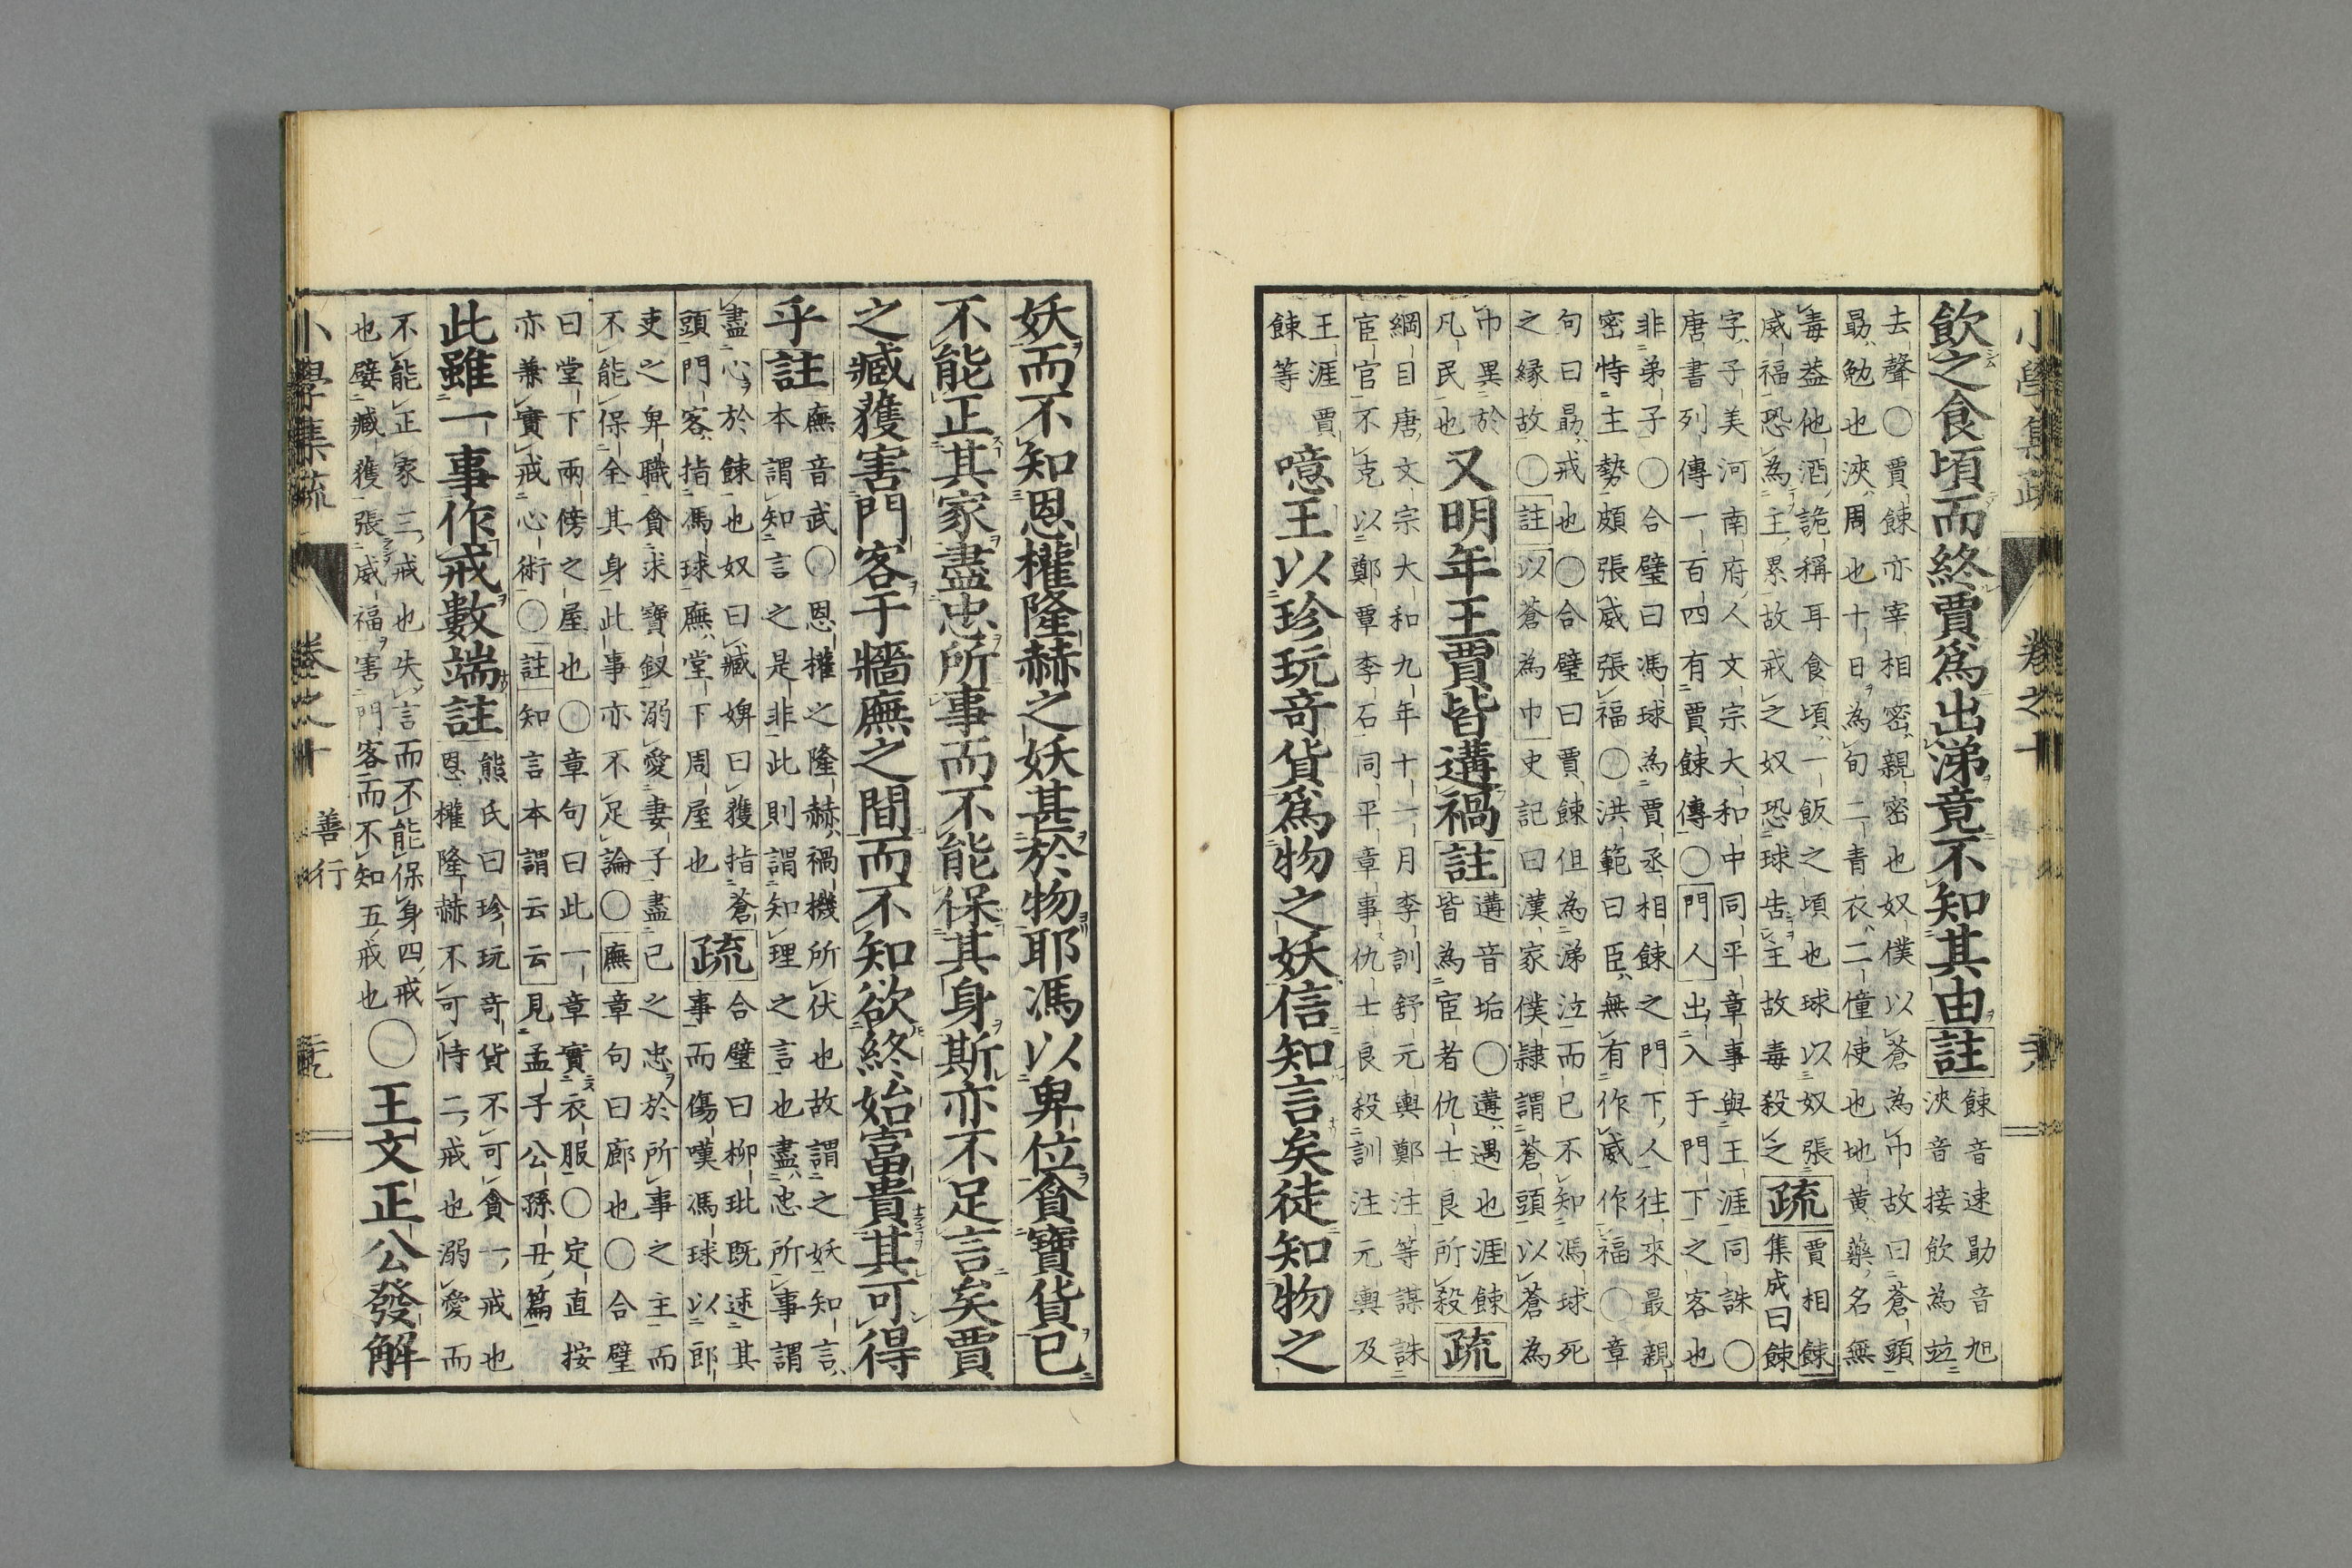 飲之食頃而終賈爲出涕竟不知其由註餗音速勗音旭
浹音接飲為竝
去聲○賈餗亦宰相密親密也奴僕以蒼為巾故曰蒼頭
勗勉也浹周也十日為旬二青衣二僮使也地黄藥名無
毒葢他酒詭稱耳食頃一飯之頃也球以奴張
威福恐為主累故戒之奴恐球告主故毒殺之疏賈相餗
集成曰餗
字子美河南府人文宗大和中同平章事與王涯同誅○
唐書列傳一百四有賈餗傳○門人出入于門下之客也
非弟子○合璧曰馮球為賈丞相餗之門下人往來最親
密恃主勢頗張威張福○洪範曰臣無有作威作福○章
句曰勗戒也○合璧曰賈餗但為涕泣而已不知馮球死
之縁故○註以蒼為巾史記曰漢家僕隷謂蒼頭以蒼為
巾異於
凡民也又明年王賈皆遘禍註遘音垢○遘遇也涯餗
皆為宦者仇士良所殺疏
綱目唐文宗大和九年十一月李訓舒元輿鄭注等謀誅
宦官不克以鄭覃李石同平章事仇士良殺訓注元輿及
王涯賈
餗等噫王以珍玩奇貨爲物之妖信知言矣徒知物之
妖而不知恩權隆赫之妖甚於物耶馮以卑位貪寶貨已
不能正其家盡忠所事而不能保其身斯亦不足言矣賈
之臧獲害門客于牆廡之間而不知欲終始富貴其可得
乎註廡音武○恩權之隆赫禍機所伏也故謂之妖知言
本謂知言之是非此則謂知理之言也盡忠所事謂
盡心於餗也奴曰臧婢曰獲指蒼
頭門客指馮球廡堂下周屋也疏合璧曰柳玭既述其
事而傷嘆馮球以郎
吏之卑職貪求寶釵溺愛妻子盡己之忠於所事之主而
不能保全其身此事亦不足論○廡章句曰廊也○合璧
曰堂下兩傍之屋也○章句曰此一章實衣服○定直按
亦兼實戒心術○註知言本謂云云見孟子公孫丑篇
此雖一事作戒數端註熊氏曰珍玩奇貨不可貪一戒也
恩權隆赫不可恃二戒也溺愛而
不能正家三戒也失言而不能保身四戒
也嬖臧獲張威福害門客而不知五戒也○王文正公發解
小學集疏
卷之十
善行